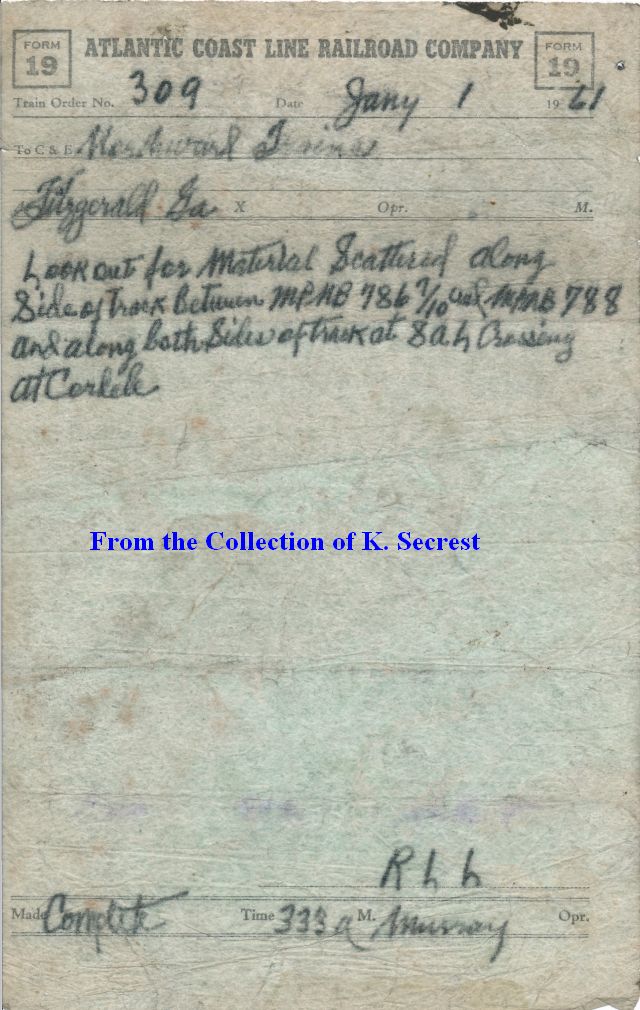 FORM 19
ATLANTIC COAST LINE RAILROAD COMPANY
FORM 19
Train Order No. 309 Date Jany 1 1961
To C & E Northward Trains
Fitzgerald Ga X Opr. M.
Look out for Material Scattered along
Side of track between MPNB 786 7/10 and MPNB 788
and along both Sides of track at SAL Crossing
at Cordele
From the Collection of K. Secrest
RLL
Made Complete Time 333 a M. Murray Opr.